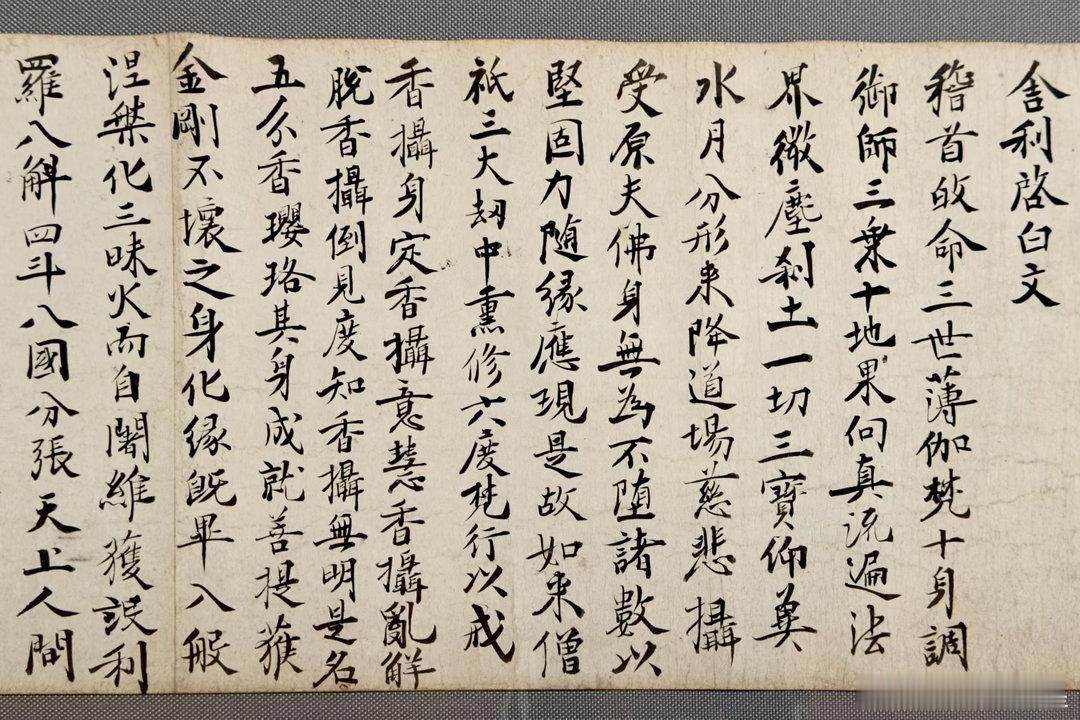 舎利啓白文
稽首皈命三世薄伽梵十身調
御師三乗十地果向真流遍法
界微塵刹土一切三寳仰冀
水月分形来降道場慈悲攝
受原夫佛身無為不堕諸數以
堅固力随縁應現是故如来僧
祇三大劫中熏修六度梵行以戒
香攝身定香攝意慧香攝亂解
脱香攝倒見度知香攝無明是名
五分香瓔珞其身成就善提獲
金剛不壊之身化縁既畢入般
涅槃化三昧火而自闍維獲設利
羅八斛四斗八國分張天上人間